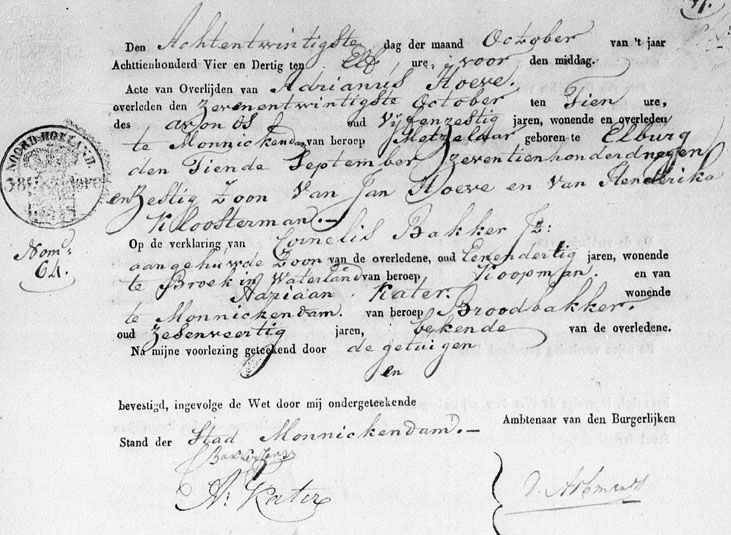 Den Achtentwintigste dag der maand October van 't jaar
Achttienhonderd Vier en Dertig ten Elf ure, voor den middag.
Acte van Overlijden van Adrianus Hoeve.
overleden den Zevenentwintigste October ten Tien ure,
des avonds oud Vyfenzestig jaren, wonende en overleden
te Monnickendam van beroep Metzelaar geboren te Elburg
den Tiende September Zeventienhonderd negen
enzestig Zoon van Jan Hoeve en van Henderika
Kloosterman.
NOORD-HOLLAND
Nom.
64.
Op de verklaring van Cornelis Bakker Jz:
aangehuwde Zoon van de overledene, oud Eenendertig jaren, wonende
te Broek in Waterland van beroep Koopman. en van
Adriaan Kater. wonende
te Monnickendam. van beroep Broodbakker.
oud Zesenveertig jaren, bekende van de overledene.
Na mijne voorlezing geteekend door de getuigen
en
bevestigd, ingevolge de Wet door mij ondergeteekende
Ambtenaar van den Burgerlijken
Stand der Stad Monnickendam.
A: Kater